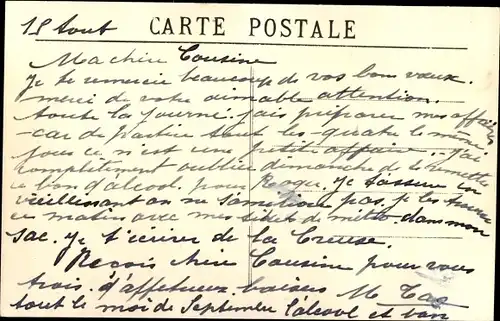 18 Aout CARTE POSTALE
Ma chère Cousine
Je te remercie beaucoup de vos bon vœux.
merci de votre aimable attention.
toute la journé. jais préparer mes affaires
car de partire tout les quatre le même
jour c'est une petite affaire. j'ai
complètement oublier dimanche de te remettre
ce bon d'alcool. pour Roger. Je t'assure en
vieillensant on ne s'améliore pas. je les trouver
ce matin avec mes dans mon
sac. Je t'écrirer de la Creuse.
Reçois chère Cousine pour vous
trois. d'affectueux baisers M
tout le moi de Septembre l'alcool et bon